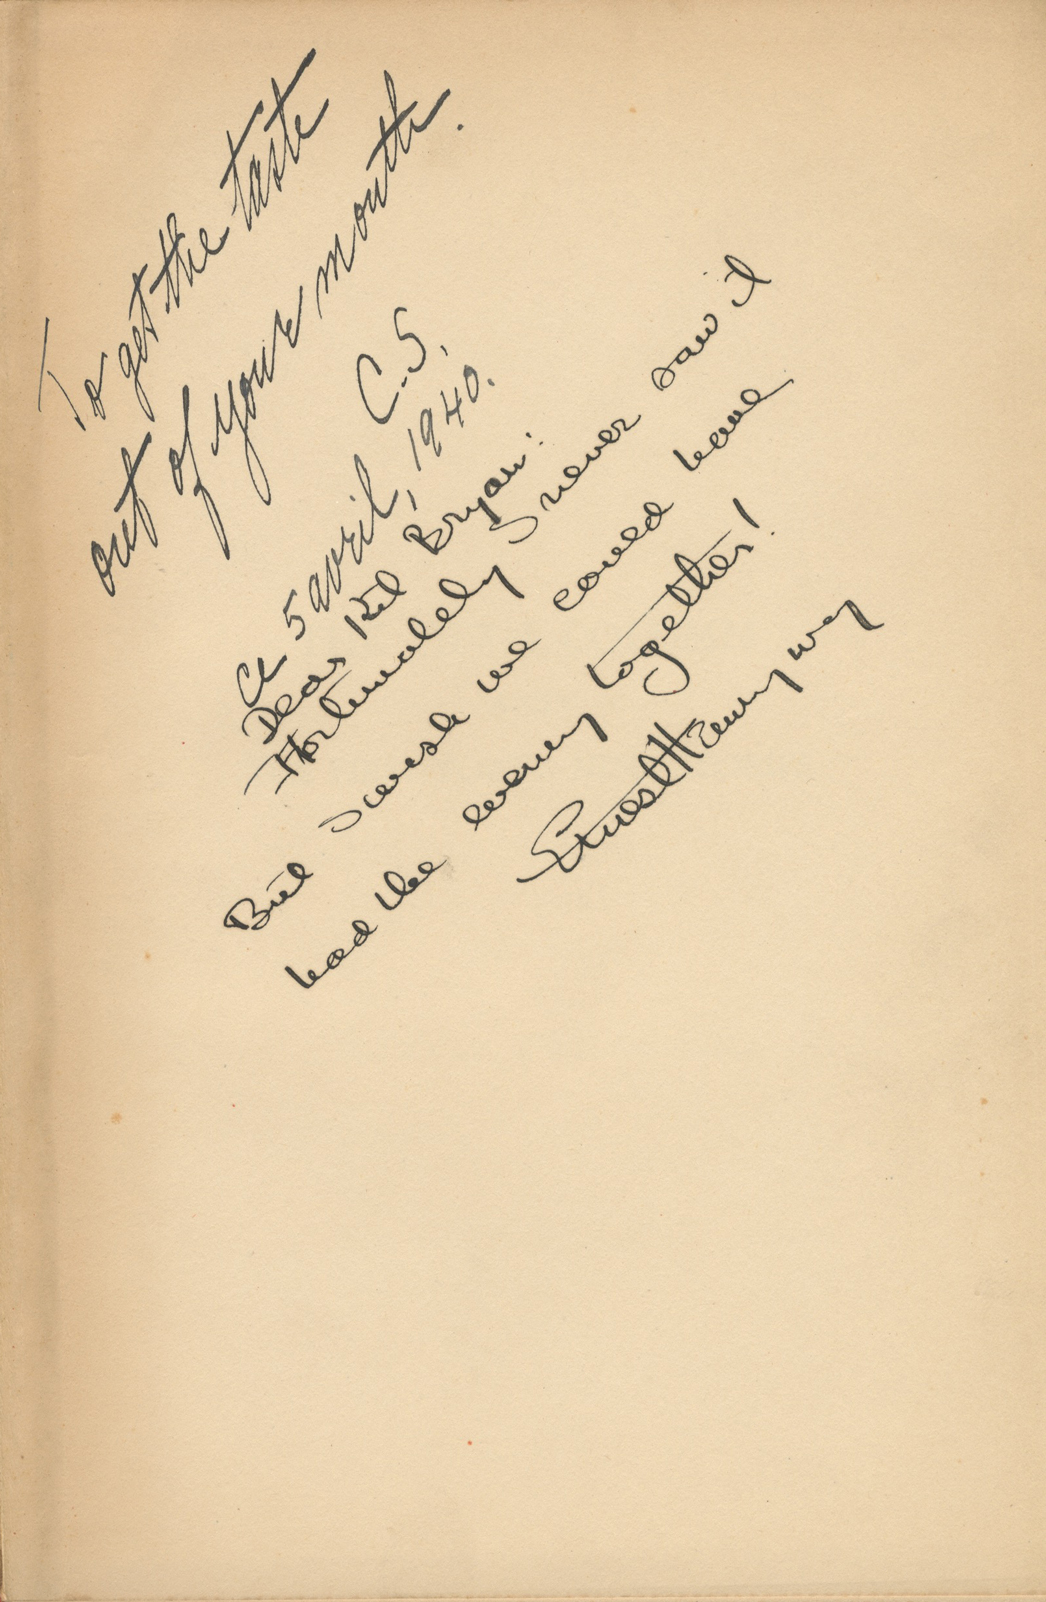 To get the taste
out of your mouth.
C.S.
5 avril, 1940.
Dear Bryan:
Fortunately I never saw it
But I wish we could have
had the evening together!
Ernest Hemingway